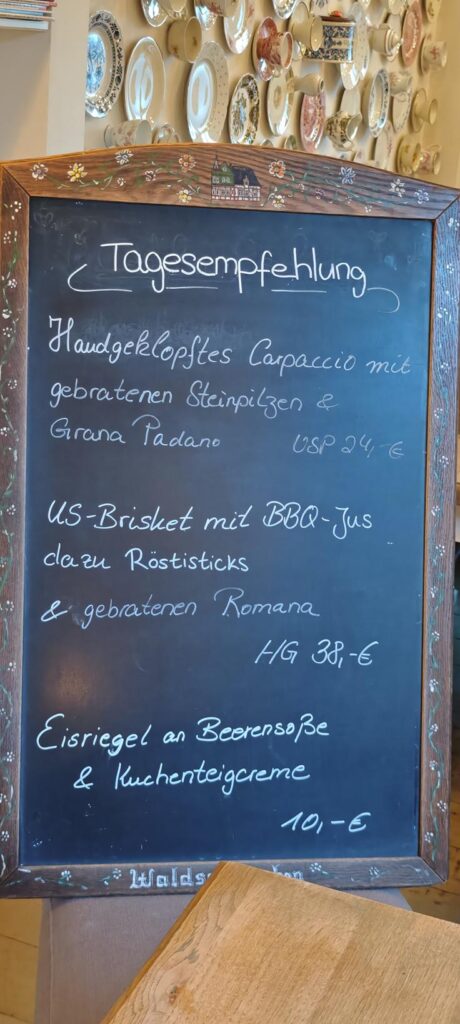 Tagesempfehlung
Handgeklopftes Carpaccio mit
gebratenen Steinpilzen &
Grana Padano VSP 24,-€
US-Brisket mit BBQ-Jus
dazu Röstisticks
& gebratenen Romana
HG 38,-€
Eisriegel an Beerensoße
& Kuchenteigcreme
10,-€